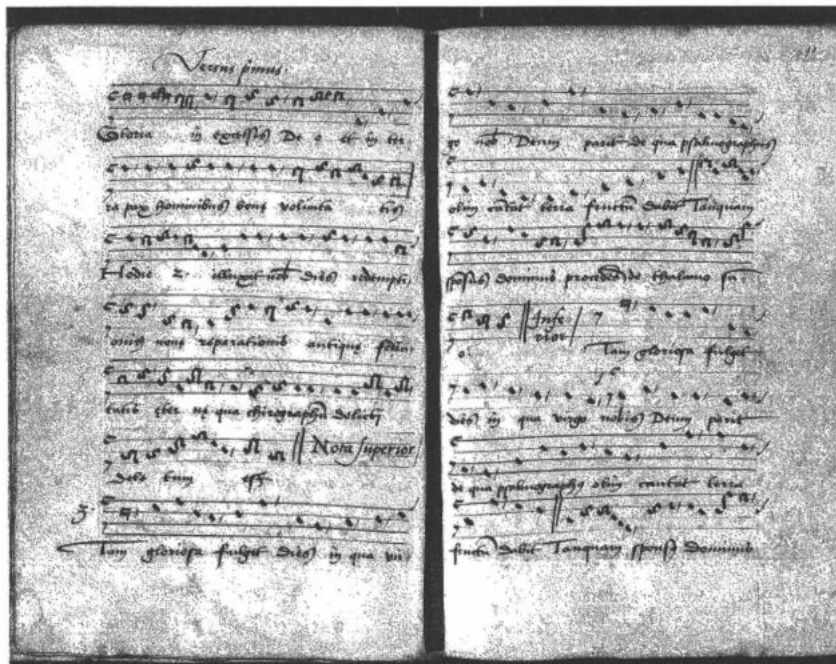 Versus primus.
Gloria in excelsis De o et in ter-
ra pax hominibus bone volunta tis
Hodie 2. illuxit nob dies redempti-
onis nove reparationis antique felici-
tatis eter ne qua chirographu delicti
dele tum est
Nota superior
3. Tam gloriosa fulget dies in qua vir-
go nob Deum parit de qua psalmographus
olim cantat terra fructu dabit Tanquam
sponsus dominus procedens de thalamo su-
o.
Infe-
rior
Tam gloriosa fulget
dies in qua virgo nobis Deum parit
de qua psalmographus olim cantat terra
fructu dabit Tanquam sponsus dominus